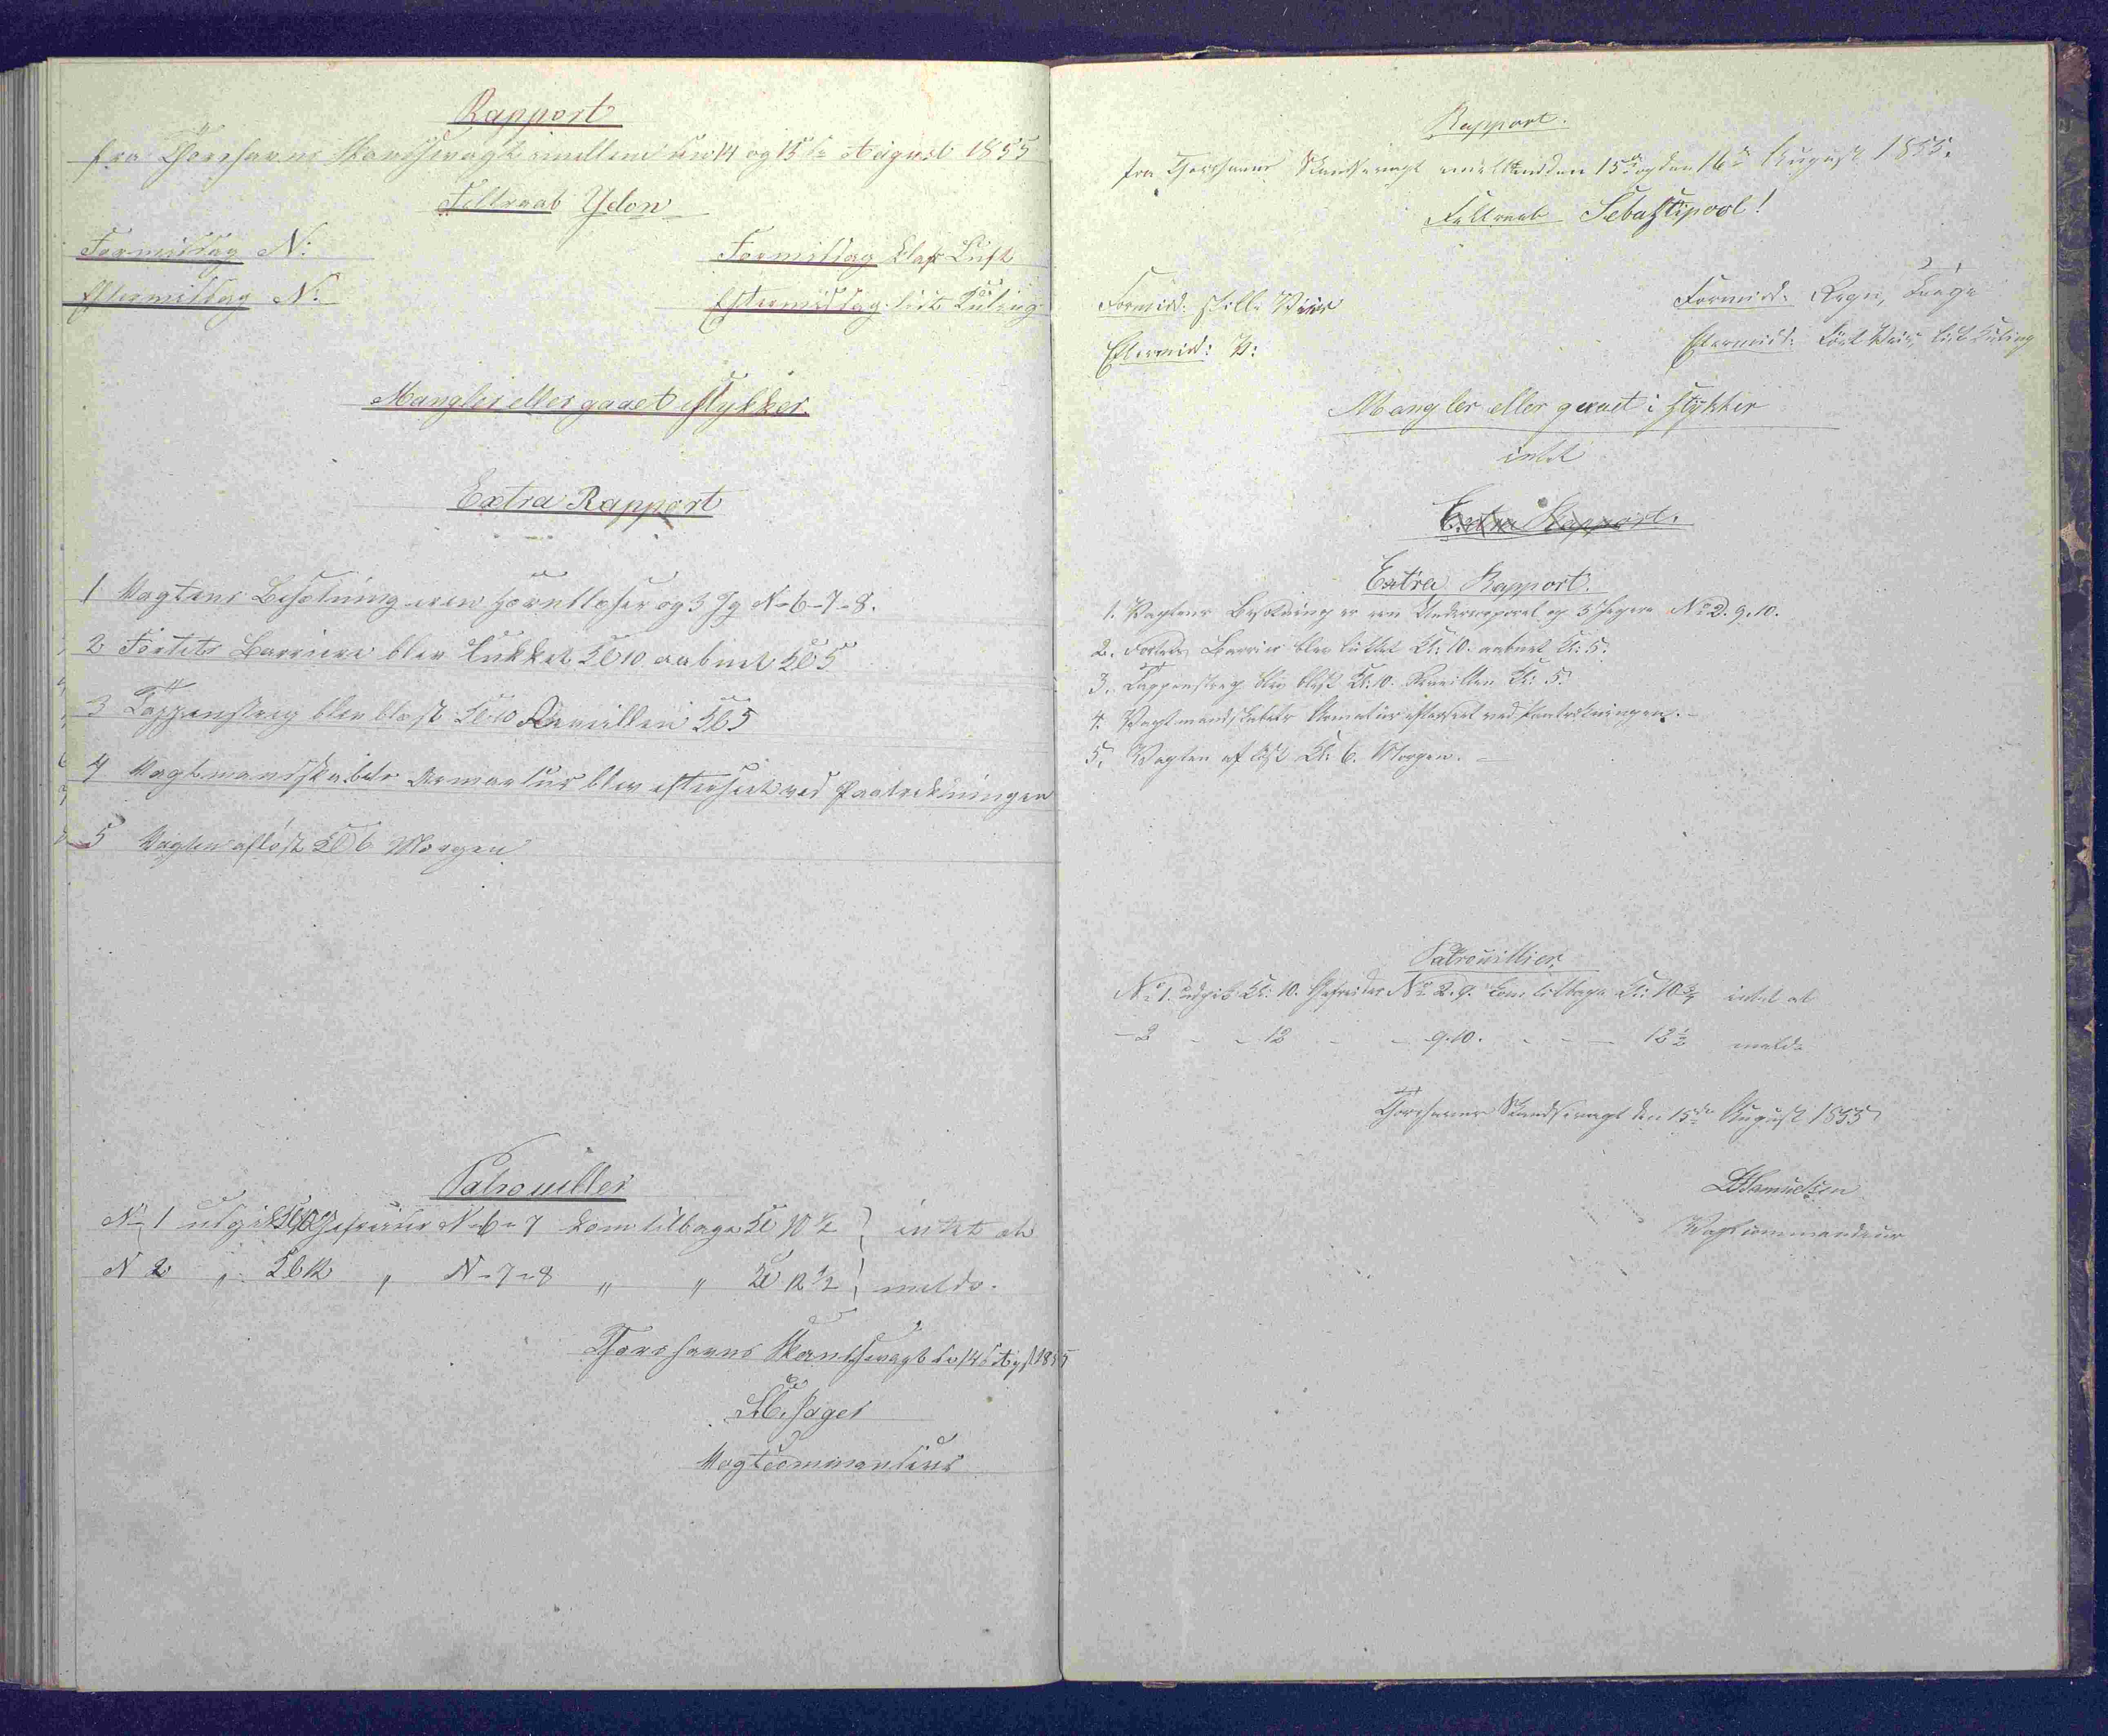 Rapport
fra Thorshavns Skandsevagt imellem den 14 og 15de August 1855
Feltraab Ydon
Formiddag N:
Formiddag klar Luft
Eftermiddag N:
Eftermiddag lidt Kuling
Mangler eller gaaet i Stykker.
Extra Rapport
1 Vagtens Besætning er en Hornblæser og 3 Jg N-6-7-8.
2 Fortets Barriere blev lukket Kl 10 aabnet Kl 5
3 Tappenstreg blev blæst Kl 10 Reveillen Kl 5
4 Vagtmandskabets Armatur blev efterseet ved Paatrædningen
5 Vagten afløst Kl 6 Morgen
Patrouiller
No 1 udgik Kl 10 Gefreider N-6-7 kom tilbage Kl 10 1/2 } intet at
N 2 " Kl 12 " N-7-8 " " Kl 12 1/2 } melde.
Thorshavns Skandsevagt d 14 d Agst 1855
Jager
Vagtcommandeur
Rapport.
fra Thorshavns Skandsevagt imellem den 15de og den 16de August 1855.
Feltraab Sebastipool!
Formidd: stille Veir
Formidd: Regn, Taage
Eftermidd: V:
Eftermidd: Tört Veir, lidt Kuling
Mangler eller gaaet i Stykker
intet
Extra Rapport.
Extra Rapport.
1. Vagtens Besætning er een Undercorporal og 3 Jægere No 2. 9. 10.
2. Fortets Barriere blev lukket Kl: 10. aabnet Kl: 5.
3. Tappenstreg blev blæst Kl: 10. Reveillen Kl: 5.
4. Vagtmandskabets Armatur efterseet ved Paatrædningen. -
5. Vagten afløst Kl: 6. Morgen. -
Patrouiller.
No 1. udgik Kl: 10. Gefreider No 2. 9. kom tilbage Kl: 10 3/4 intet at
- 2 - - 12 - - 9. 10. - - - 12 1/2 melde
Thorshavns Skandsevagt den 15de August 1855
Samuelsen
Vagtcommandeur